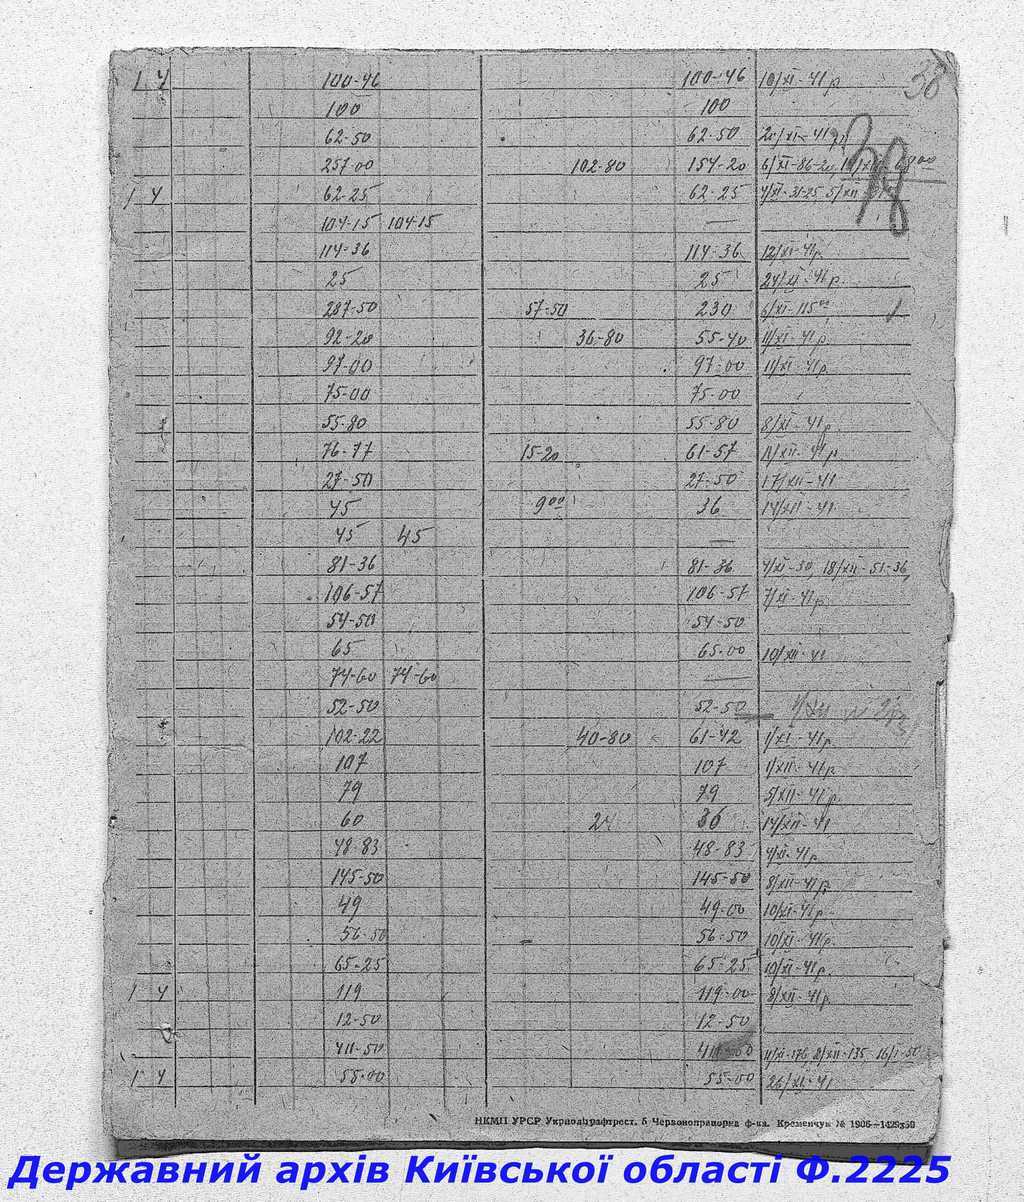 1 4 100-46 100-46 10/XI-41р 38
100 100
62-50 62-50 20/XI-41р 38
257-00 102-80 154-20 6/XI-86-20,
1 4 62-25 62-25 4/XI-31-25 5/XII
104-15 104-15 —
114-36 114-36 12/XI-41р.
25 25 24/XI-41р.
287-50 57-50 230 6/XI-115⁰⁰
92-20 36-80 55-40 11/XI-41р.
97-00 97-00 11/XI-41р.
75-00 75-00
55-80 55-80 8/XI-41р.
76-77 15-20 61-57 11/XII-41р.
27-50 27-50 17/XII-41
45 9⁰⁰ 36 14/XII-41
45 45 —
81-36 81-36 4/XI-30, 18/XII-51-36,
106-57 106-57 7/XI-41р.
54-50 54-50
65 65-00 10/XII-41
74-60 74-60 —
52-50 52-50
102-22 40-80 61-42 1/XI-41р.
107 107 1/XII-41р.
79 79 5/XII-41р.
60 24 36 14/XII-41
48-83 48-83 4/XI-41р.
145-50 145-50 8/XII-41р.
49 49-00 10/XI-41р.
56-50 56-50 10/XI-41р.
65-25 65-25 10/XI-41р.
1 4 119 119-00 8/XII-41р.
12-50 12-50
411-50 411-50 11/XI-176, 2/XII-135, 16/I-50
1 4 55-00 55-00 26/XI-41
НКМП УРСР Укрполіграфтрест. 5 Червонопрапорна ф-ка. Кременчук № 1906—1429х50
Державний архів Київської області Ф.2225